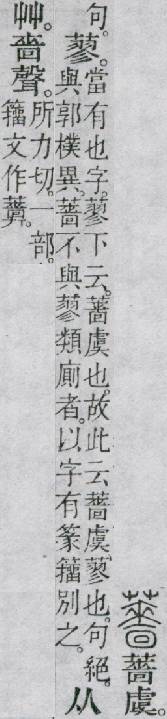 薔虞。
句。蓼。當有也字。蓼下云。薔虞也。故此云薔虞蓼也。句絕。
與郭樸異。薔不與蓼類廁者。以字有篆籒別之。从
艸。嗇聲。所力切。一部。
籒文作